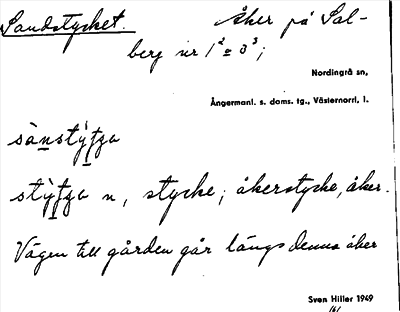 Sandstycket. Åker på Sal-
berg nr 1² o 3³;
Nordingrå sn,
Ångermanl. s. doms. tg., Västernorrl. l.
n, stycke; åkerstycke, åker.
Vägen till gården går längs denna åker
Sven Hiller 1949